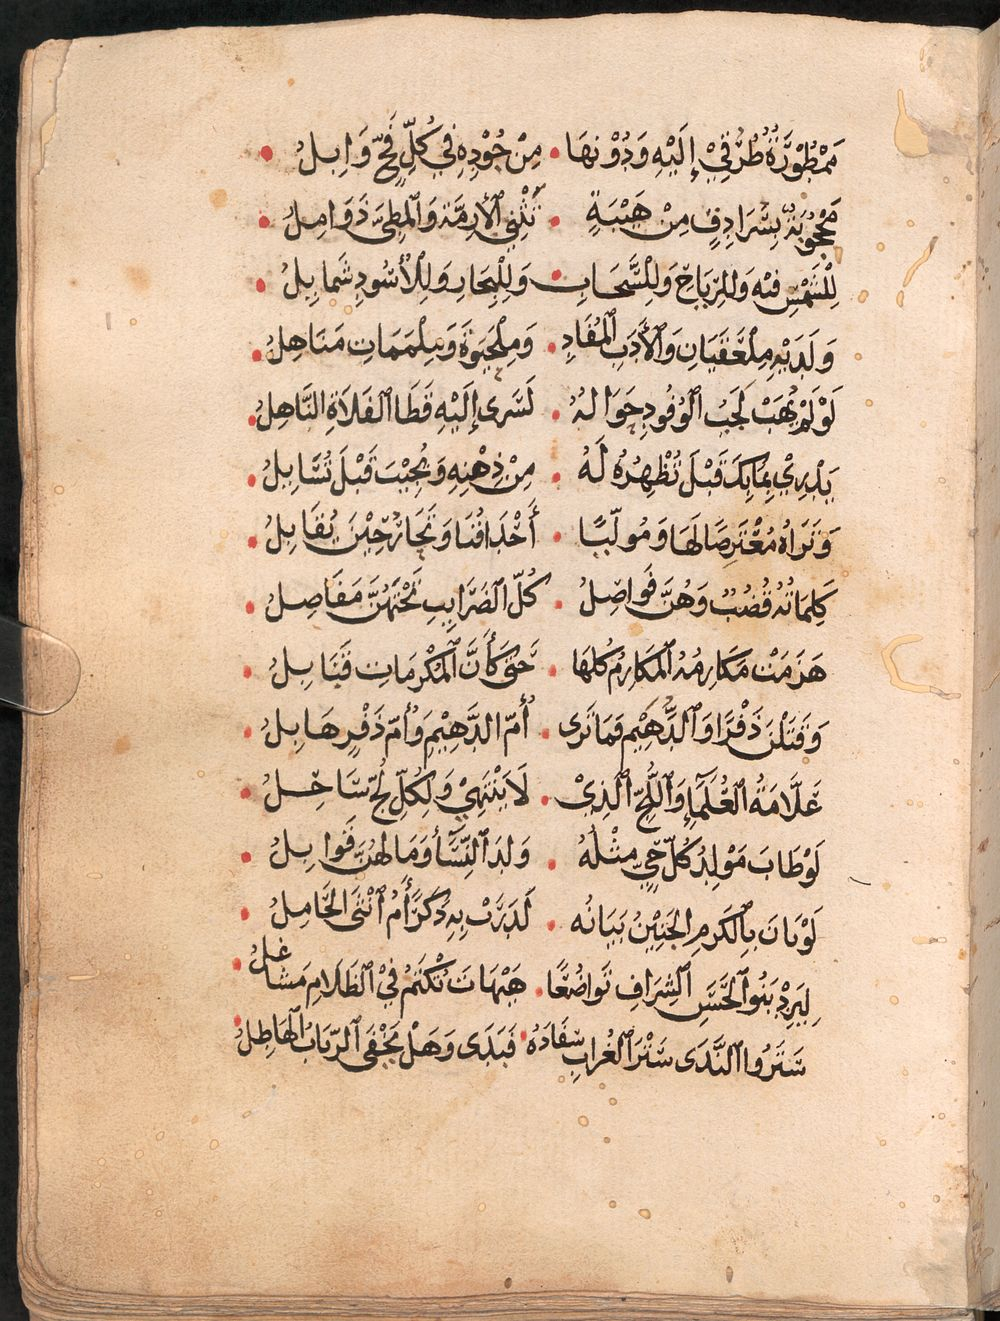 مَمْطُورَةٌ طُرُقِي إِلَيْهِ وَدُوْنهَا • مِنْ جُوْدِهِ فِي كُلِّ فَجٍّ وَابِلُ •
مَحْجُوبَةٌ بِسُرَادِقٍ مِنْ هَيْبَةٍ • تَثْنِي ٱلأَزِمَّةَ وَٱلْمَطِيَّ ذَوَامِلُ •
لِلْشَمْسِ فِيْهِ وَلِلْرِيَاحِ وَلِلْسَّحَابِ • وَلِلْبِحَارِ وَلِلْأُسُودِ شَمَايِلُ •
وَلَدَيْهِ مِلْعَقيَانِ وَٱلْأَدَبِ ٱلْمُفَادِ • وَمِلْحَيَوةِ وَمِلْمَمَاتِ مَنَاهِلُ •
لَوْ لَمْ يُهَبْ لَجَبُ ٱلْوُفُودِ حَوَالَهُ • لَسَرى إِلَيْهِ قَطَا ٱلْفَلَاةِ النَّاهِلُ •
يَدْرِيْ بِمَا بِكَ قَبْلَ تُظْهِرُهُ لَهُ • مِنْ ذِهْنِهِ وَيُجِيْبُ قَبْلَ تُسَّايِلُ •
وَتَرَاهُ مُعْتَرِضًا لَهَا وَمُوَلّيًا • أَحْدَاقُنَا وَتَحَارُ حِيْنَ يُقَابِلُ •
كَلِمَاتُهُ قُضُبٌ وَهُنَّ فَوَاصِلُ • كُلّ ٱلضَرَايِبِ تَحْتَهُنَّ مَفَاصِلُ •
هَزَمَتْ مَكَارِمُهُ ٱلْمَكَارِمَ كُلهَا • حَتّى كَأَنَّ ٱلْمَكْرمَاتِ قَنَابِلُ •
وَقَتَلْنَ دَفْرًا وَٱلدُّهَيْمِ فَمَا تَرى • أُمّ الدُّهَيْمِ وَأُمّ دَفْرٍ هَابِلُ •
عَلَّامَةُ ٱلْعُلَمَآءِ وَٱللُّجّ ٱلَّذِي • لَا يَنْتَهِيْ وَلِكُلِّ لُجّ سَاحِلُ •
لَوْ طَابَ مَوْلِدُ كُلّ حَيٍّ مِثْلَهُ • وَلَدَ ٱلنِّسَآءُ وَمَا لَهُنَّ قَوَابِلُ •
لَوْ بَانَ بِٱلْكَرَمِ الجَنِيْنُ بَيَانَهُ • لَدَرَتْ بِهِ ذَكَرٌ أَمُ ٱنْثَى الْحَامِلُ •
لِيَزِدْ بَنُو ٱلْحَسَنِ ٱلْشِرَافِ تَوَاضُعًا • هَيْهَاتَ تُكْتَمُ فِيْ ٱلظَلَامِ مَشَاعِلُ •
سَتَرُوا ٱلنَّدَى سَتْرَ ٱلْغُرَابِ سِفَادَهُ • فَبَدَى وَهَلْ يَخْفَى ٱلرَّبَابُ ٱلْهَاطِلُ •